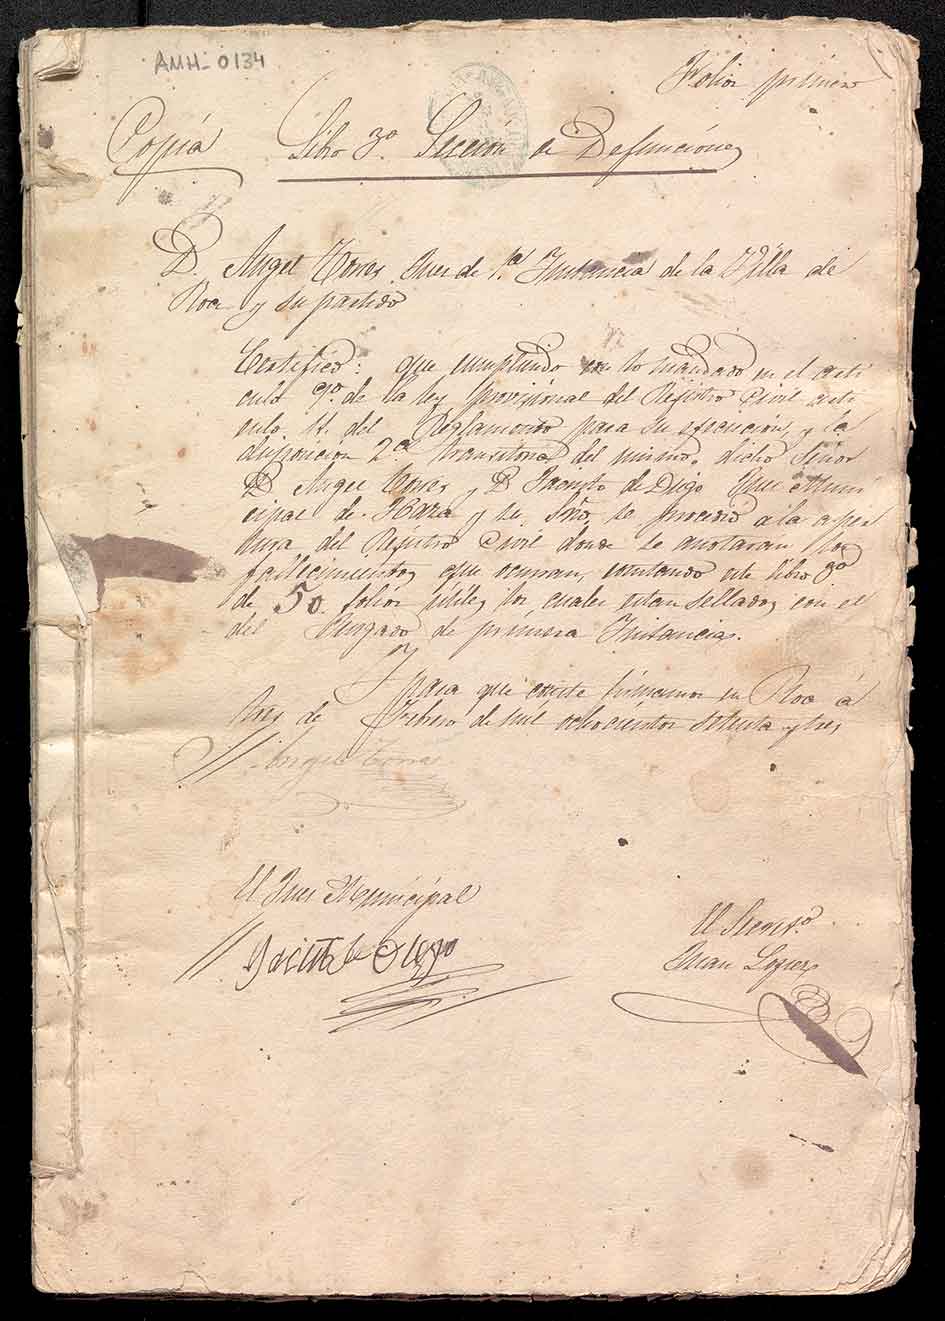 AMH-0134
Folio primero
Copia Libro 3º Sección de Defunciones
D. Angel Torres Juez de 1ª Instancia de la Villa de
Roa y su partido
Certifico: que cumpliendo con lo mandado en el arti
culo 9º de la ley provisional del Registro Civil arti
culo 11 del Reglamento para su ejecucion, y la
disposicion 2ª transitoria del mismo, dicho Señor
D. Angel Torres y D. Jacinto de Diego Juez Muni
cipal de Haza y su Srio, se procedio a la aper
tura del Registro Civil donde se anotaran los
fallecimientos que ocurran, constando este libro 3º
de 50 folios utiles, los cuales estan sellados con el
del Juzgado de primera Instancia.
Y
para que conste firmamos en Roa á
tres de Febrero de mil ochocientos setenta y tres
Angel Torres
El Juez Municipal
El Secret.º
Jacinto de Diego
Juan Lopez